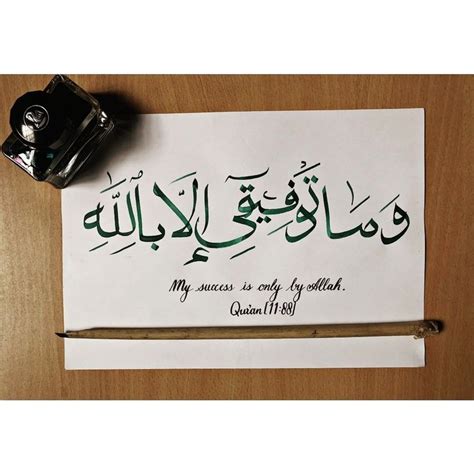 وَمَا تَوْفِيقِي إِلَّا بِاللَّهِ
My success is only by Allah.
Qur'an [11:88]